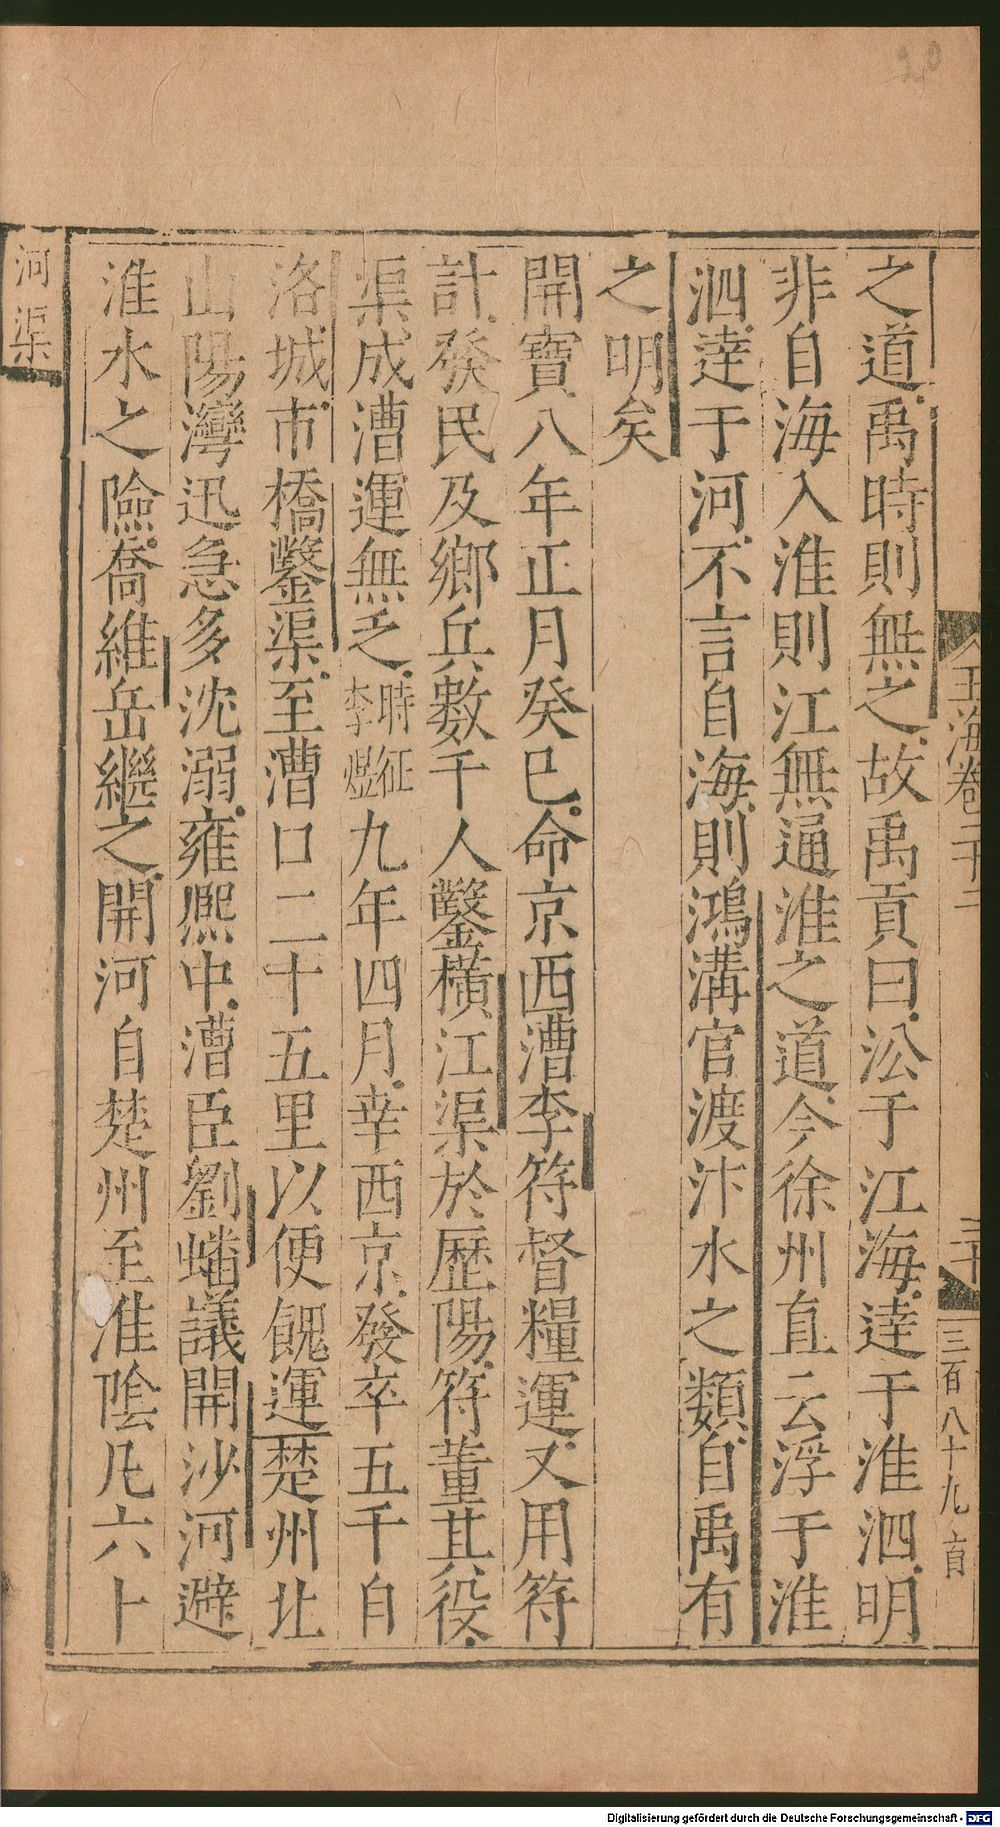 20
玉海卷二十二
三十
三百八十九
之道禹時則無之故禹貢曰㳂于江海逹于淮泗明
非自海入淮則江無通淮之道今徐州直云浮于淮
泗逹于河不言自海則鴻溝官渡汴水之類自禹有
之明矣
開寶八年正月癸巳命京西漕李符督糧運又用符
計發民及鄉兵數千人鑿橫江渠於歷陽符董其役
渠成漕運無乏時征李煜九年四月幸西京發卒五千自
洛城市橋鑿渠至漕口二十五里以便餽運楚州北
山陽灣迅急多沈溺雍熈中漕臣劉蟠議開沙河避
淮水之險喬維岳繼之開河自楚州至淮陰凡六十
河渠
Digitalisierung gefördert durch die Deutsche Forschungsgemeinschaft - DFG